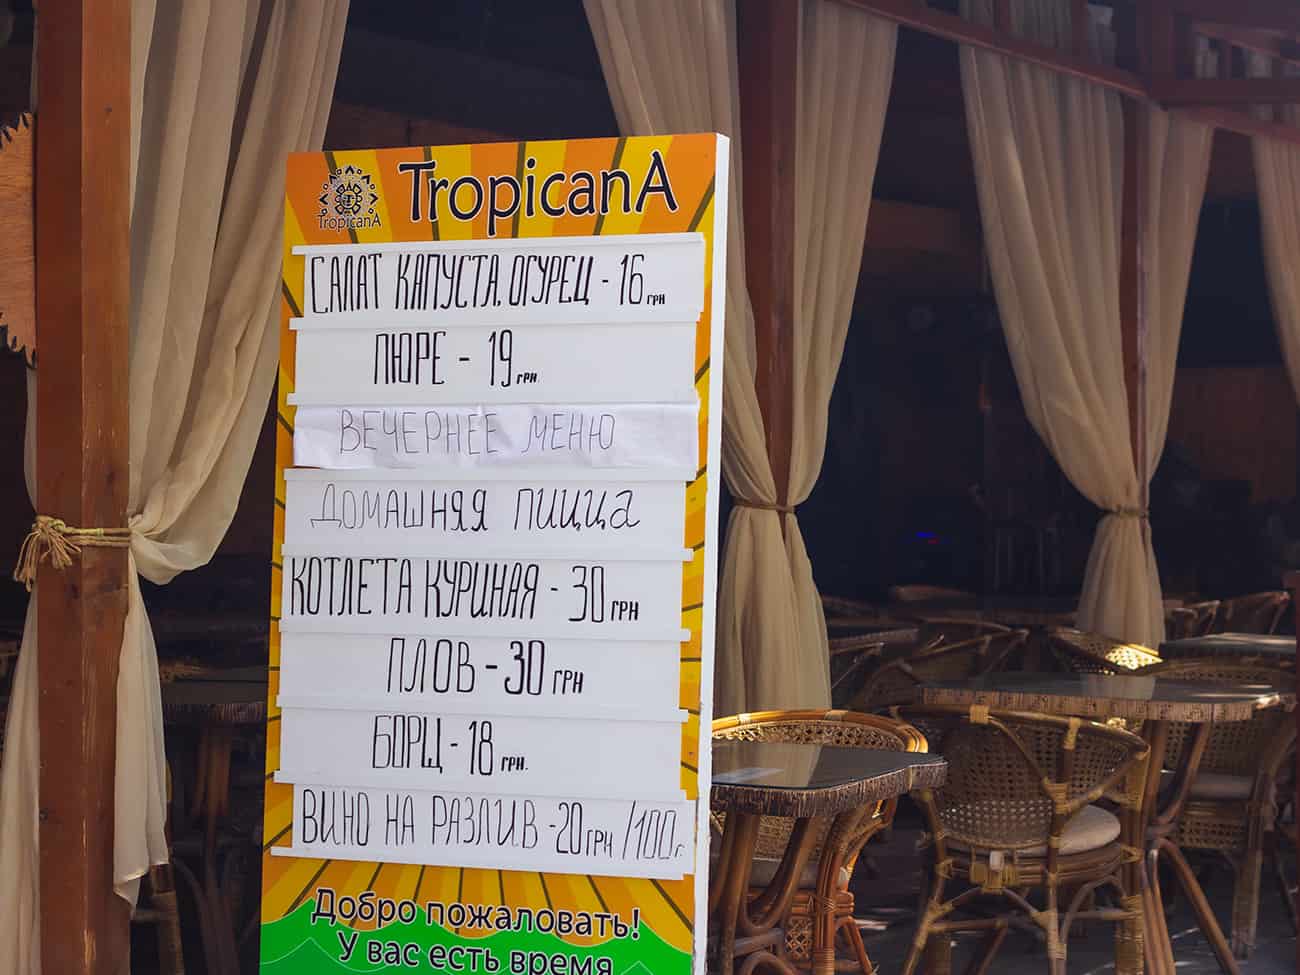 TropicanA
TropicanA
САЛАТ КАПУСТА, ОГУРЕЦ - 16 ГРН
ПЮРЕ - 19 ГРН.
ВЕЧЕРНЕЕ МЕНЮ
ДОМАШНЯЯ ПИЦЦа
КОТЛЕТА КУРИНАЯ - 30 ГРН
ПЛОВ - 30 ГРН
БОРЩ - 18 ГРН.
ВИНО НА РАЗЛИВ - 20 ГРН /100 г.
Добро пожаловать!
У вас есть время